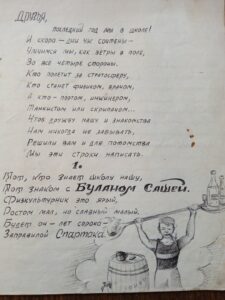 Друзья,
последний год мы в школе!
И скоро – дни уж сочтены –
Умчимся мы, как ветры в поле,
Во все четыре стороны.
Кто полетит за стратосферу,
Кто станет физиком, врачом,
А кто – поэтом, инженером,
Танкистом или скрипачом...
Чтоб дружбу нашу и знакомства
Нам никогда не забывать,
Решили вам и для потомства
Мы эти строки написать.
1.
Тот, кто знает школу нашу,
Тот знаком с Буланом Сашей.
Физкультурник это ярый,
Ростом мал, но славный малый.
Будет он – лет сорока –
Заправилой „Спартака"